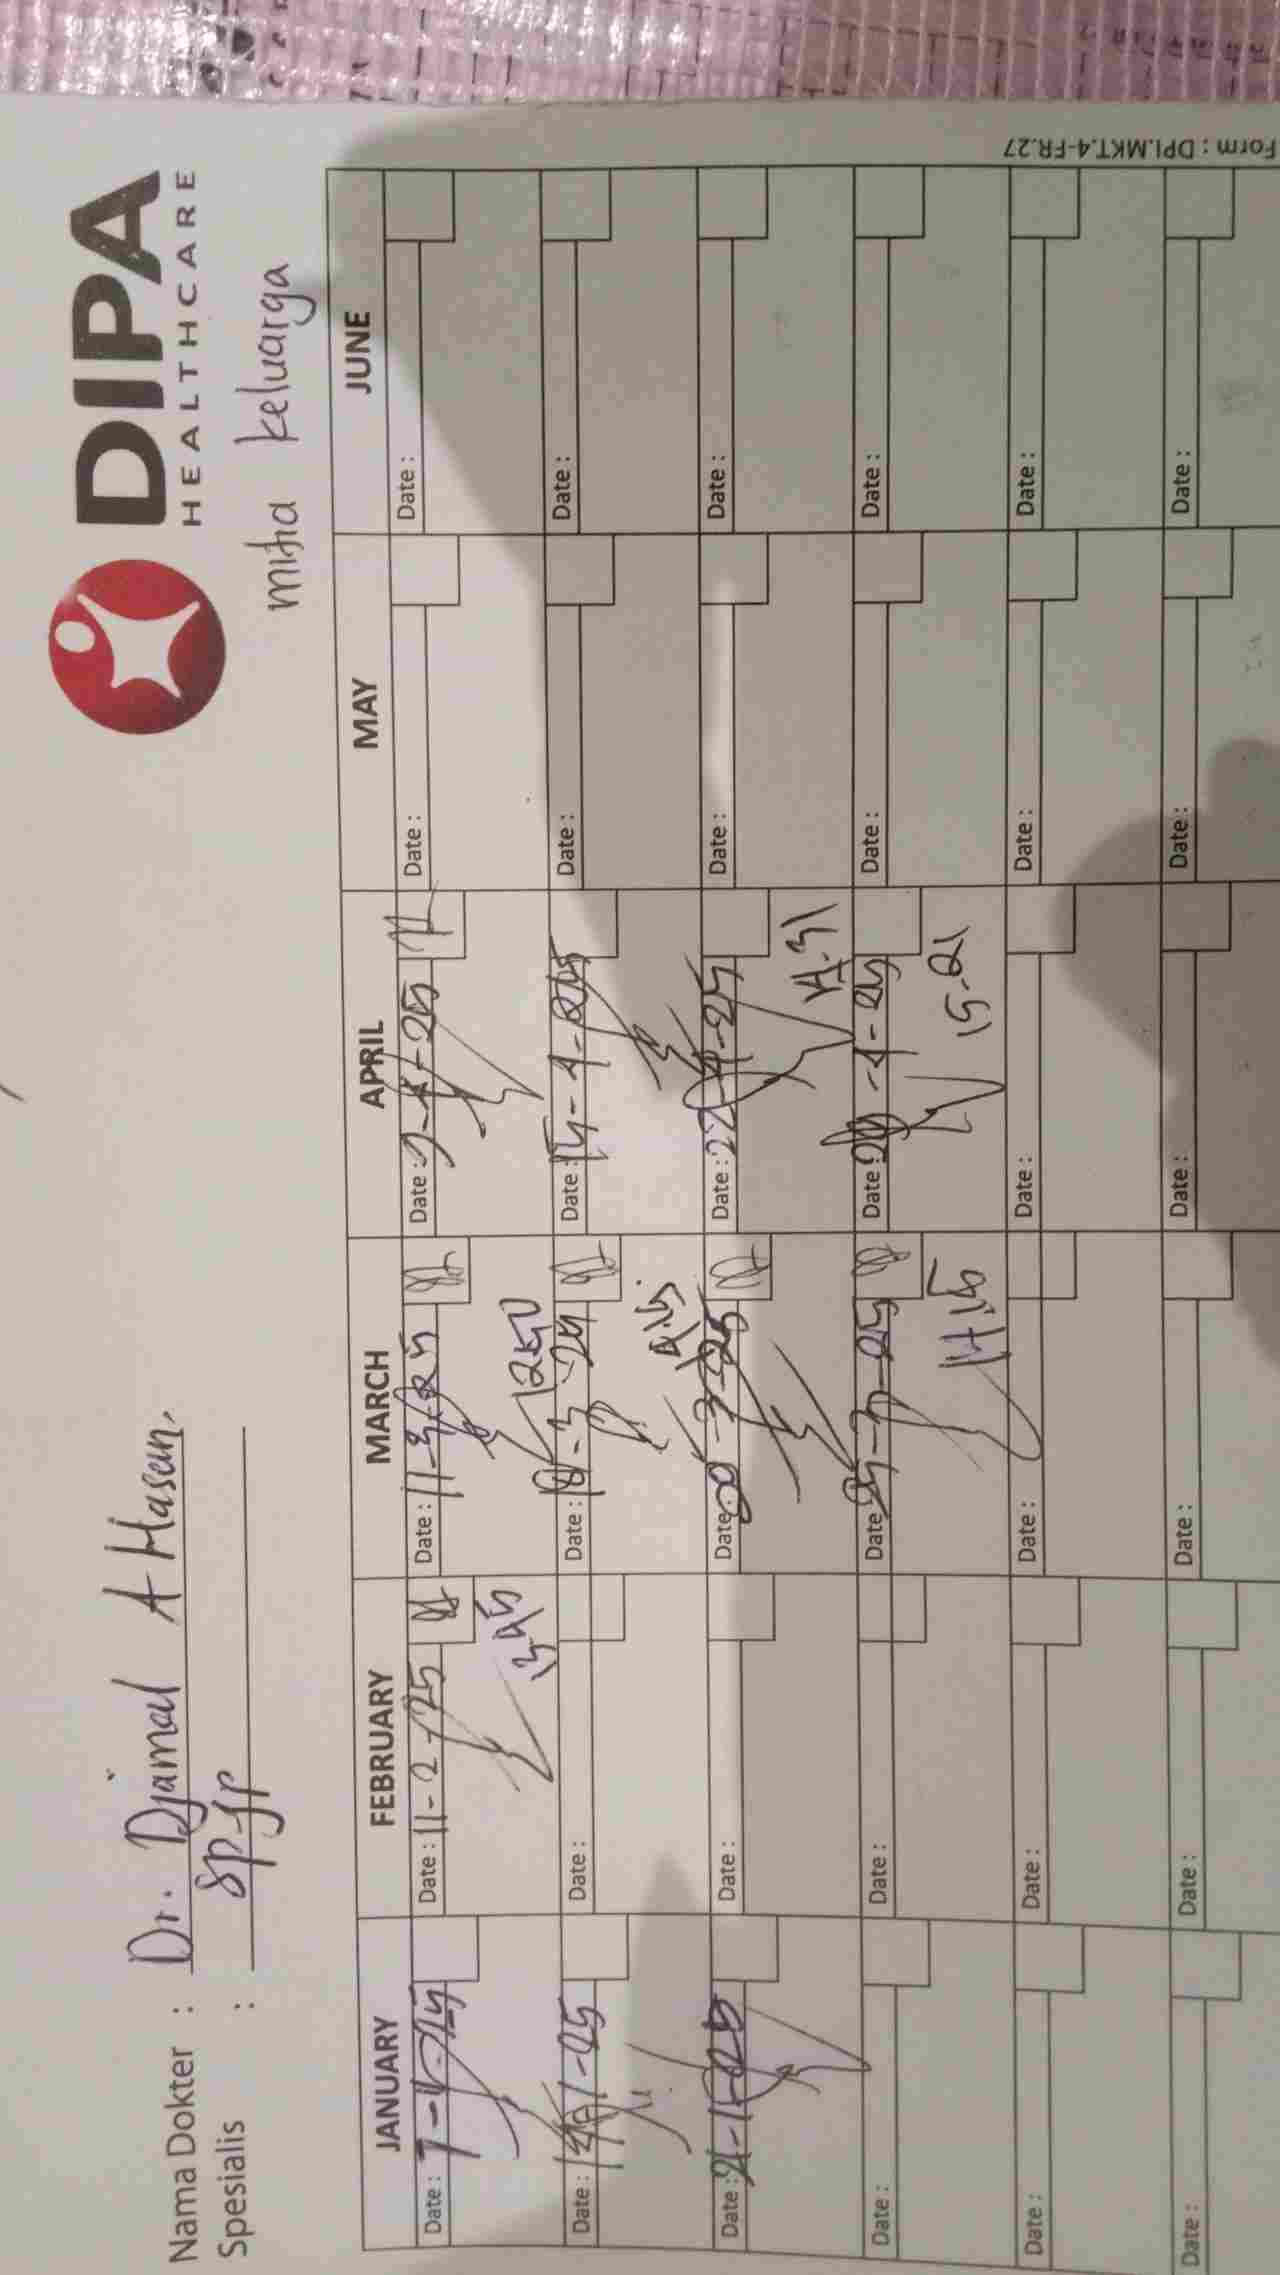 DIPA
HEALTHCARE
mitra keluarga
Nama Dokter : Dr. Djamal A Hasan,
Spesialis : Sp.JP
JANUARY FEBRUARY MARCH APRIL MAY JUNE
Date : 7-1-25 Date : 11-2-25 Date : 11-3-25 Date : 9-4-25 Date : Date :
13.45 1250
Date : 14-1-25 Date : Date : 18-3-25 Date : 15-4-25 Date : Date :
Date : 21-1-25 Date : Date : 20-3-25 Date : 22-4-25 Date : Date :
14.31
Date : Date : Date : 25-3-25 Date : 29-4-25 Date : Date :
14.15 15-21
Date : Date : Date : Date : Date : Date :
Date : Date : Date : Date : Date : Date :
Form : DPI.MKT.4-FR.27